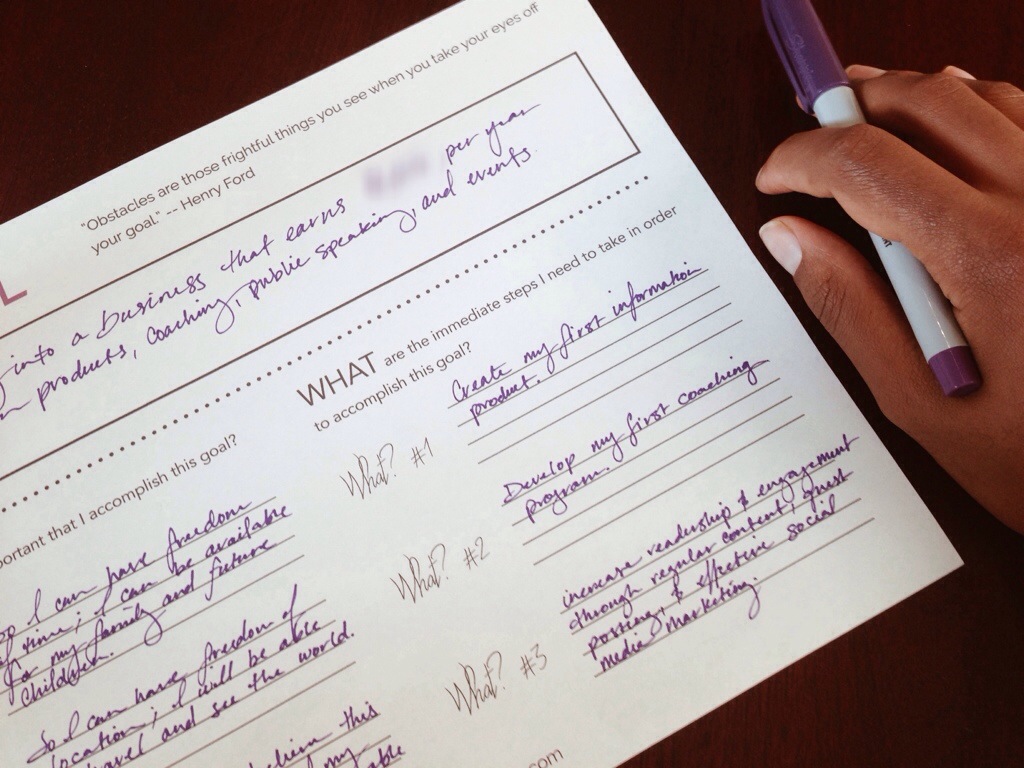 "Obstacles are those frightful things you see when you take your eyes off
your goal." -- Henry Ford
L
into a business that earns per year
products, coaching, public speaking, and events
WHAT are the immediate steps I need to take in order
to accomplish this goal?
What? #1
Create my first information
product.
What? #2
Develop my first coaching
program.
What? #3
increase readership & engagement
through regular content, guest
posting, & effective social
media marketing.
portant that I accomplish this goal?
I can have freedom
of time; I can be available
for my family and future
children.
So I can have freedom of
location; I will be able
travel and see the world.
this
my
able
.com